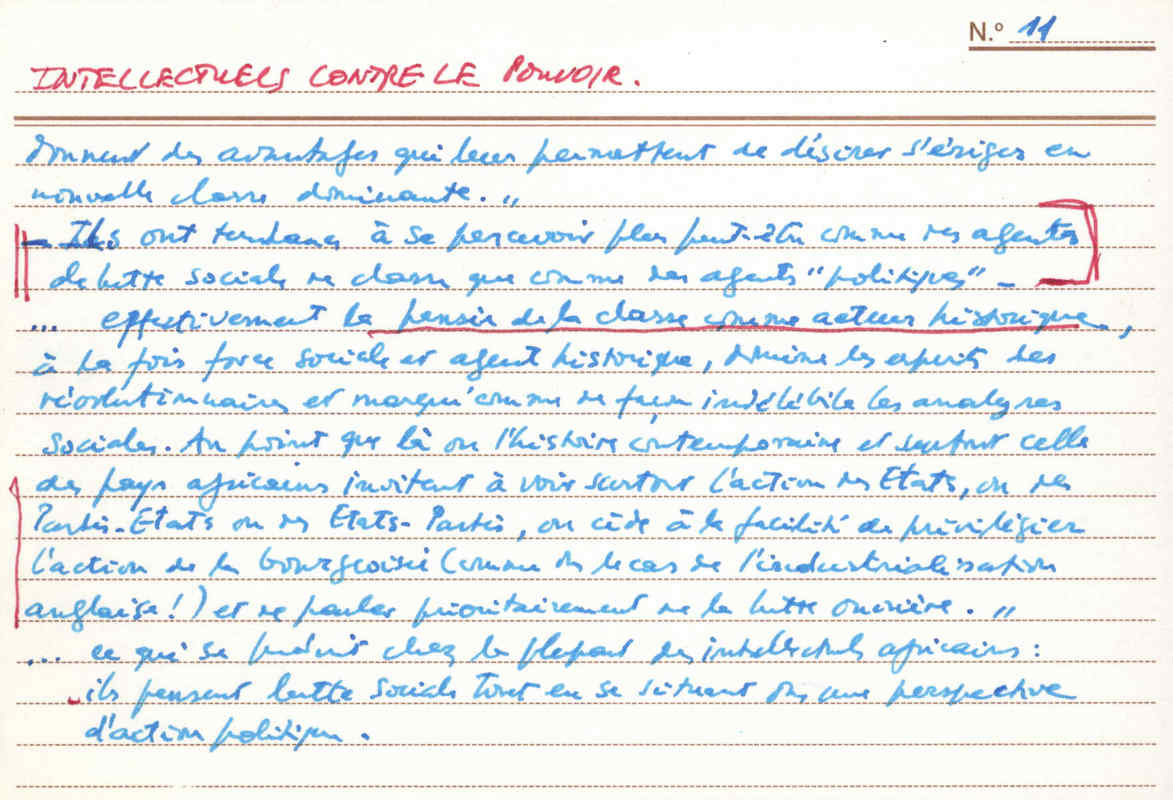 N.º 11
INTELLECTUELS CONTRE LE POUVOIR.
donnent des avantages qui leur permettent de désirer s'ériger en
nouvelle classe dominante. "
- Ils ont tendance à se percevoir plus peut-être comme des agents
de lutte sociale de classe que comme des agents "politiques" -
... effectivement la pensée de la classe comme acteur historique,
à la fois force sociale et agent historique, domine les esprits des
révolutionnaires et marqu' comme de façon indélébile les analyses
sociales. Au point que là où l'histoire contemporaine et surtout celle
des pays africains invitent à voir surtout l'action des Etats, ou des
Partis-Etats ou des Etats-Partis, on cède à la facilité de privilégier
l'action de la bourgeoisie (comme ds le cas de l'industrialisation
anglaise !) et de parler prioritairement de la lutte ouvrière. "
... ce qui se produit chez la plupart des intellectuels africains :
ils pensent lutte sociale tout en se situant ds une perspective
d'action politique.